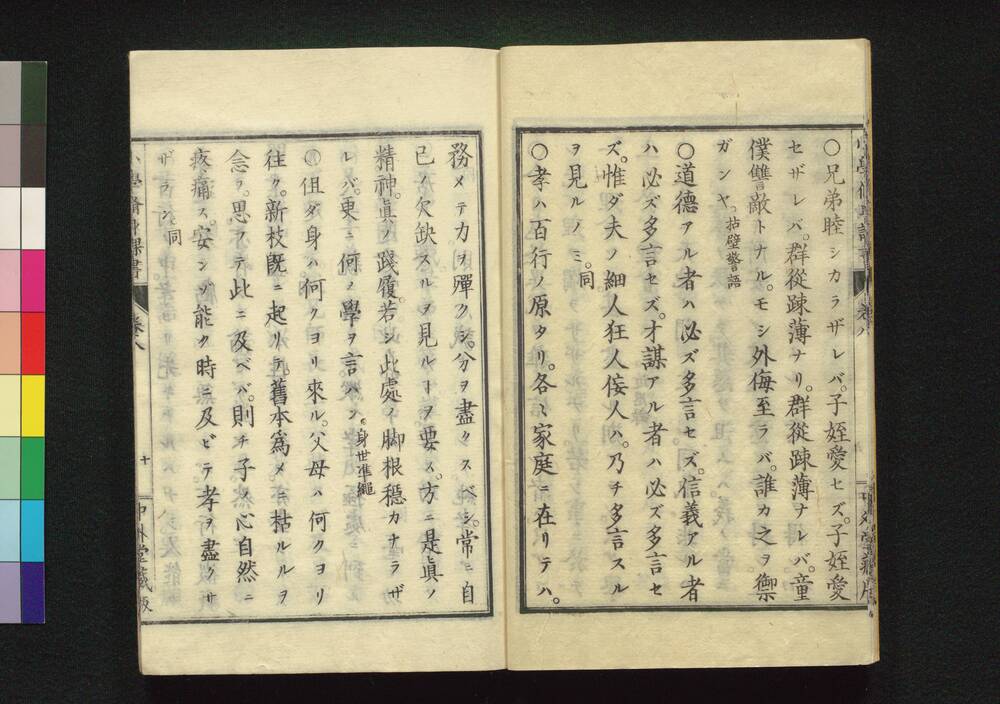 〇兄弟睦シカラザレバ。子姪愛セズ。子姪愛
セザレバ。群從踈薄ナリ。群從踈薄ナレバ。童
僕讐敵トナル。モシ外侮至ラバ。誰カ之ヲ禦
ガンヤ。拈壁警語
〇道德アル者ハ必ズ多言セズ。信義アル者
ハ必ズ多言セズ。才謀アル者ハ必ズ多言セ
ズ。惟ダ夫ノ細人狂人侫人ハ。乃チ多言スル
ヲ見ルノミ。同
〇孝ハ百行ノ原タリ。各〻家庭ニ在リテハ。
務メテ力ヲ殫クシ。分ヲ盡クスベシ。常ニ自
已ノ欠缺スルヲ見ルヿヲ要ス。方ニ是眞ノ
精神。眞ノ踐履。若シ此處ノ脚根穩カナラザ
レバ。更ニ何ノ學ヲ言ハン。身世準繩
〇但ダ身ハ何クヨリ來ル。父母ハ何クヨリ
往ク。新枝旣ニ起リテ。舊本爲メニ枯ルルヲ
念フ。思フテ此ニ及ベバ。則チ子ノ心自然ニ
疼痛ス。安ンゾ能ク時ニ及ビテ孝ヲ盡クサ
ザラン。同
小學脩身課書
卷八
十
中外堂藏版